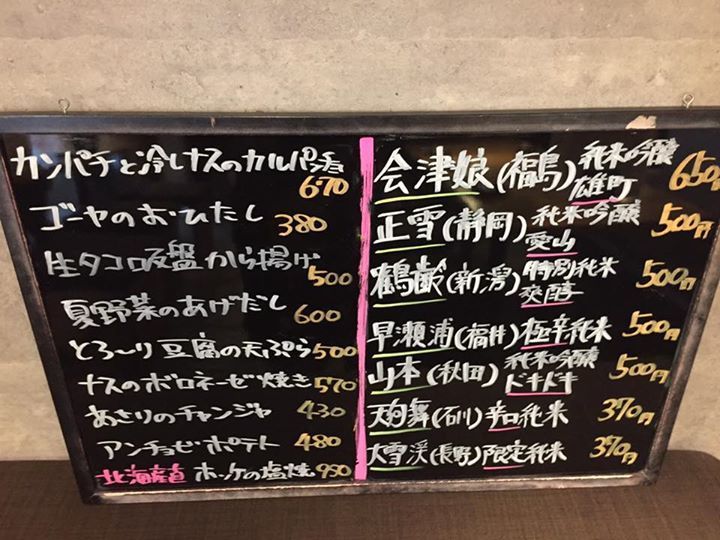 カンパチと冷しナスのカルパッチョ
670
ゴーヤのおひたし 380
生タコ吸盤から揚げ
500
夏野菜のあげだし 600
とろ〜り豆腐の天ぷら 500
ナスのボロネーゼ焼き 570
あさりのチャンジャ 430
アンチョビポテト 480
北海産直 ホッケの塩焼 950
会津娘(福島)純米吟醸 雄町 650円
正雪(静岡)純米吟醸 愛山 500円
鶴蔵(新潟)特別純米 発酵 500円
早瀬浦(福井)極辛純米 500円
山本(秋田)純米吟醸 ドキドキ 500円
天狗舞(石川)辛口純米 390円
大雪渓(長野)限定純米 390円